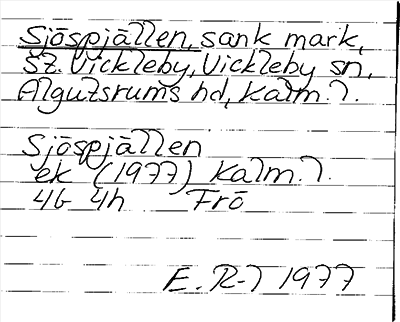 Sjöspjällen, sank mark,
sz. Vickleby, Vickleby sn,
Algutsrums hd, Kalm. l.
Sjöspjällen
ek (1977) Kalm. l.
4G 4h Frö
E. R-l 1977